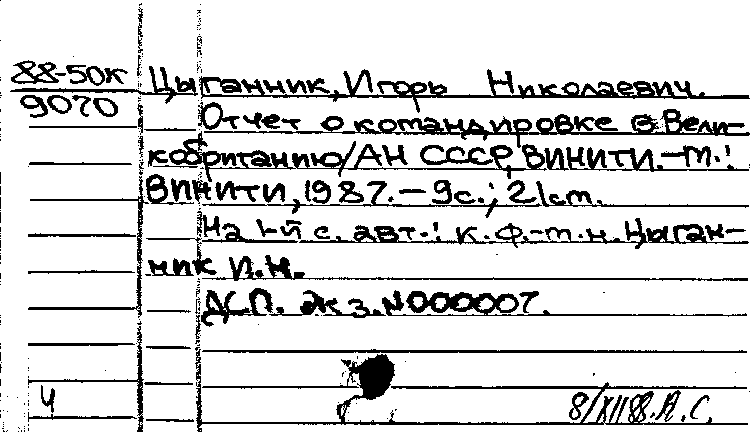 88-50к
9070
Цыганник, Игорь Николаевич.
Отчет о командировке в Вели-
кобританию/АН СССР, ВИНИТИ.-М.:
ВИНИТИ, 1987.-9с.; 21cm.
На 1-й с. авт.: к.ф.-м.н. Цыган-
ник И.Н.
ДСП. Экз.N000007.
4
8/XII88.А.С.